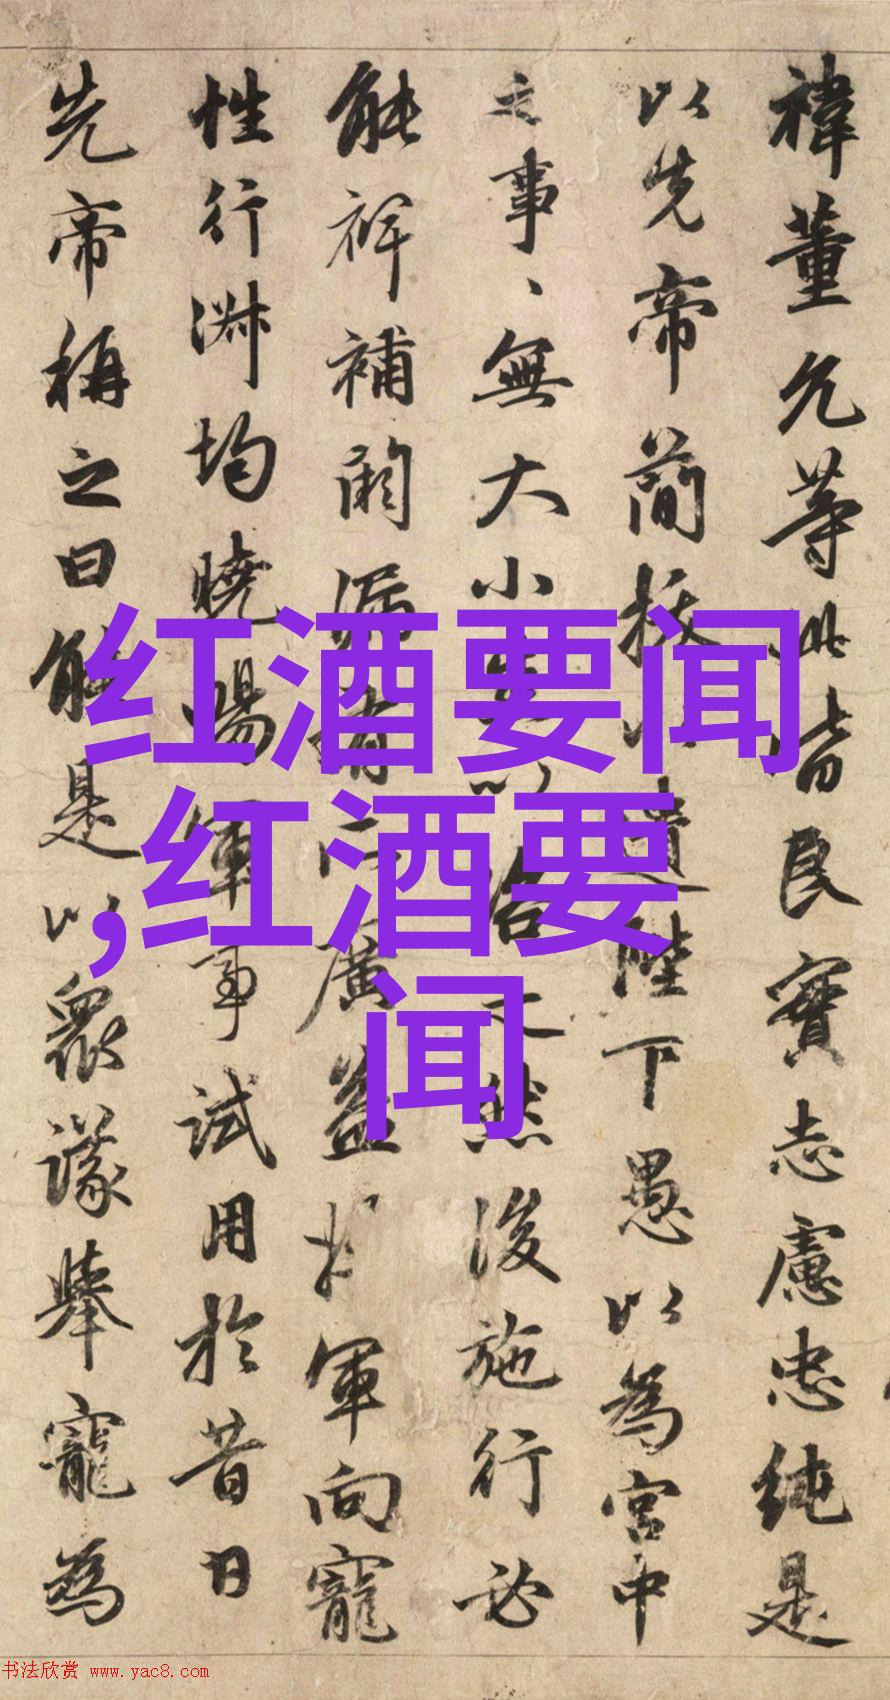 禕董允等此皆良實志慮忠純是
以先帝簡拔以遺陛下愚以為宮中
之事、無大小悉以咨之然後施行必
能裨補闕漏有所廣益將軍向寵
性行淑均曉暢軍事試用於昔日
先帝稱之曰能是以眾議舉寵為
红酒要闻
,红酒要
闻
书法欣赏 www.yac8.com